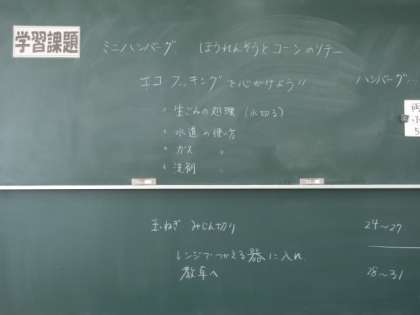 学習課題
ミニハンバーグ ほうれんそうとコーンのソテー
エコクッキングを心がけよう!!
ハンバーグ
・生ごみの処理 (水切る)
・水道の使い方
・ガス 〃
・洗剤 〃
玉ねぎ みじん切り 24~27
レンジでつかえる器に入れ
教卓へ 28~31